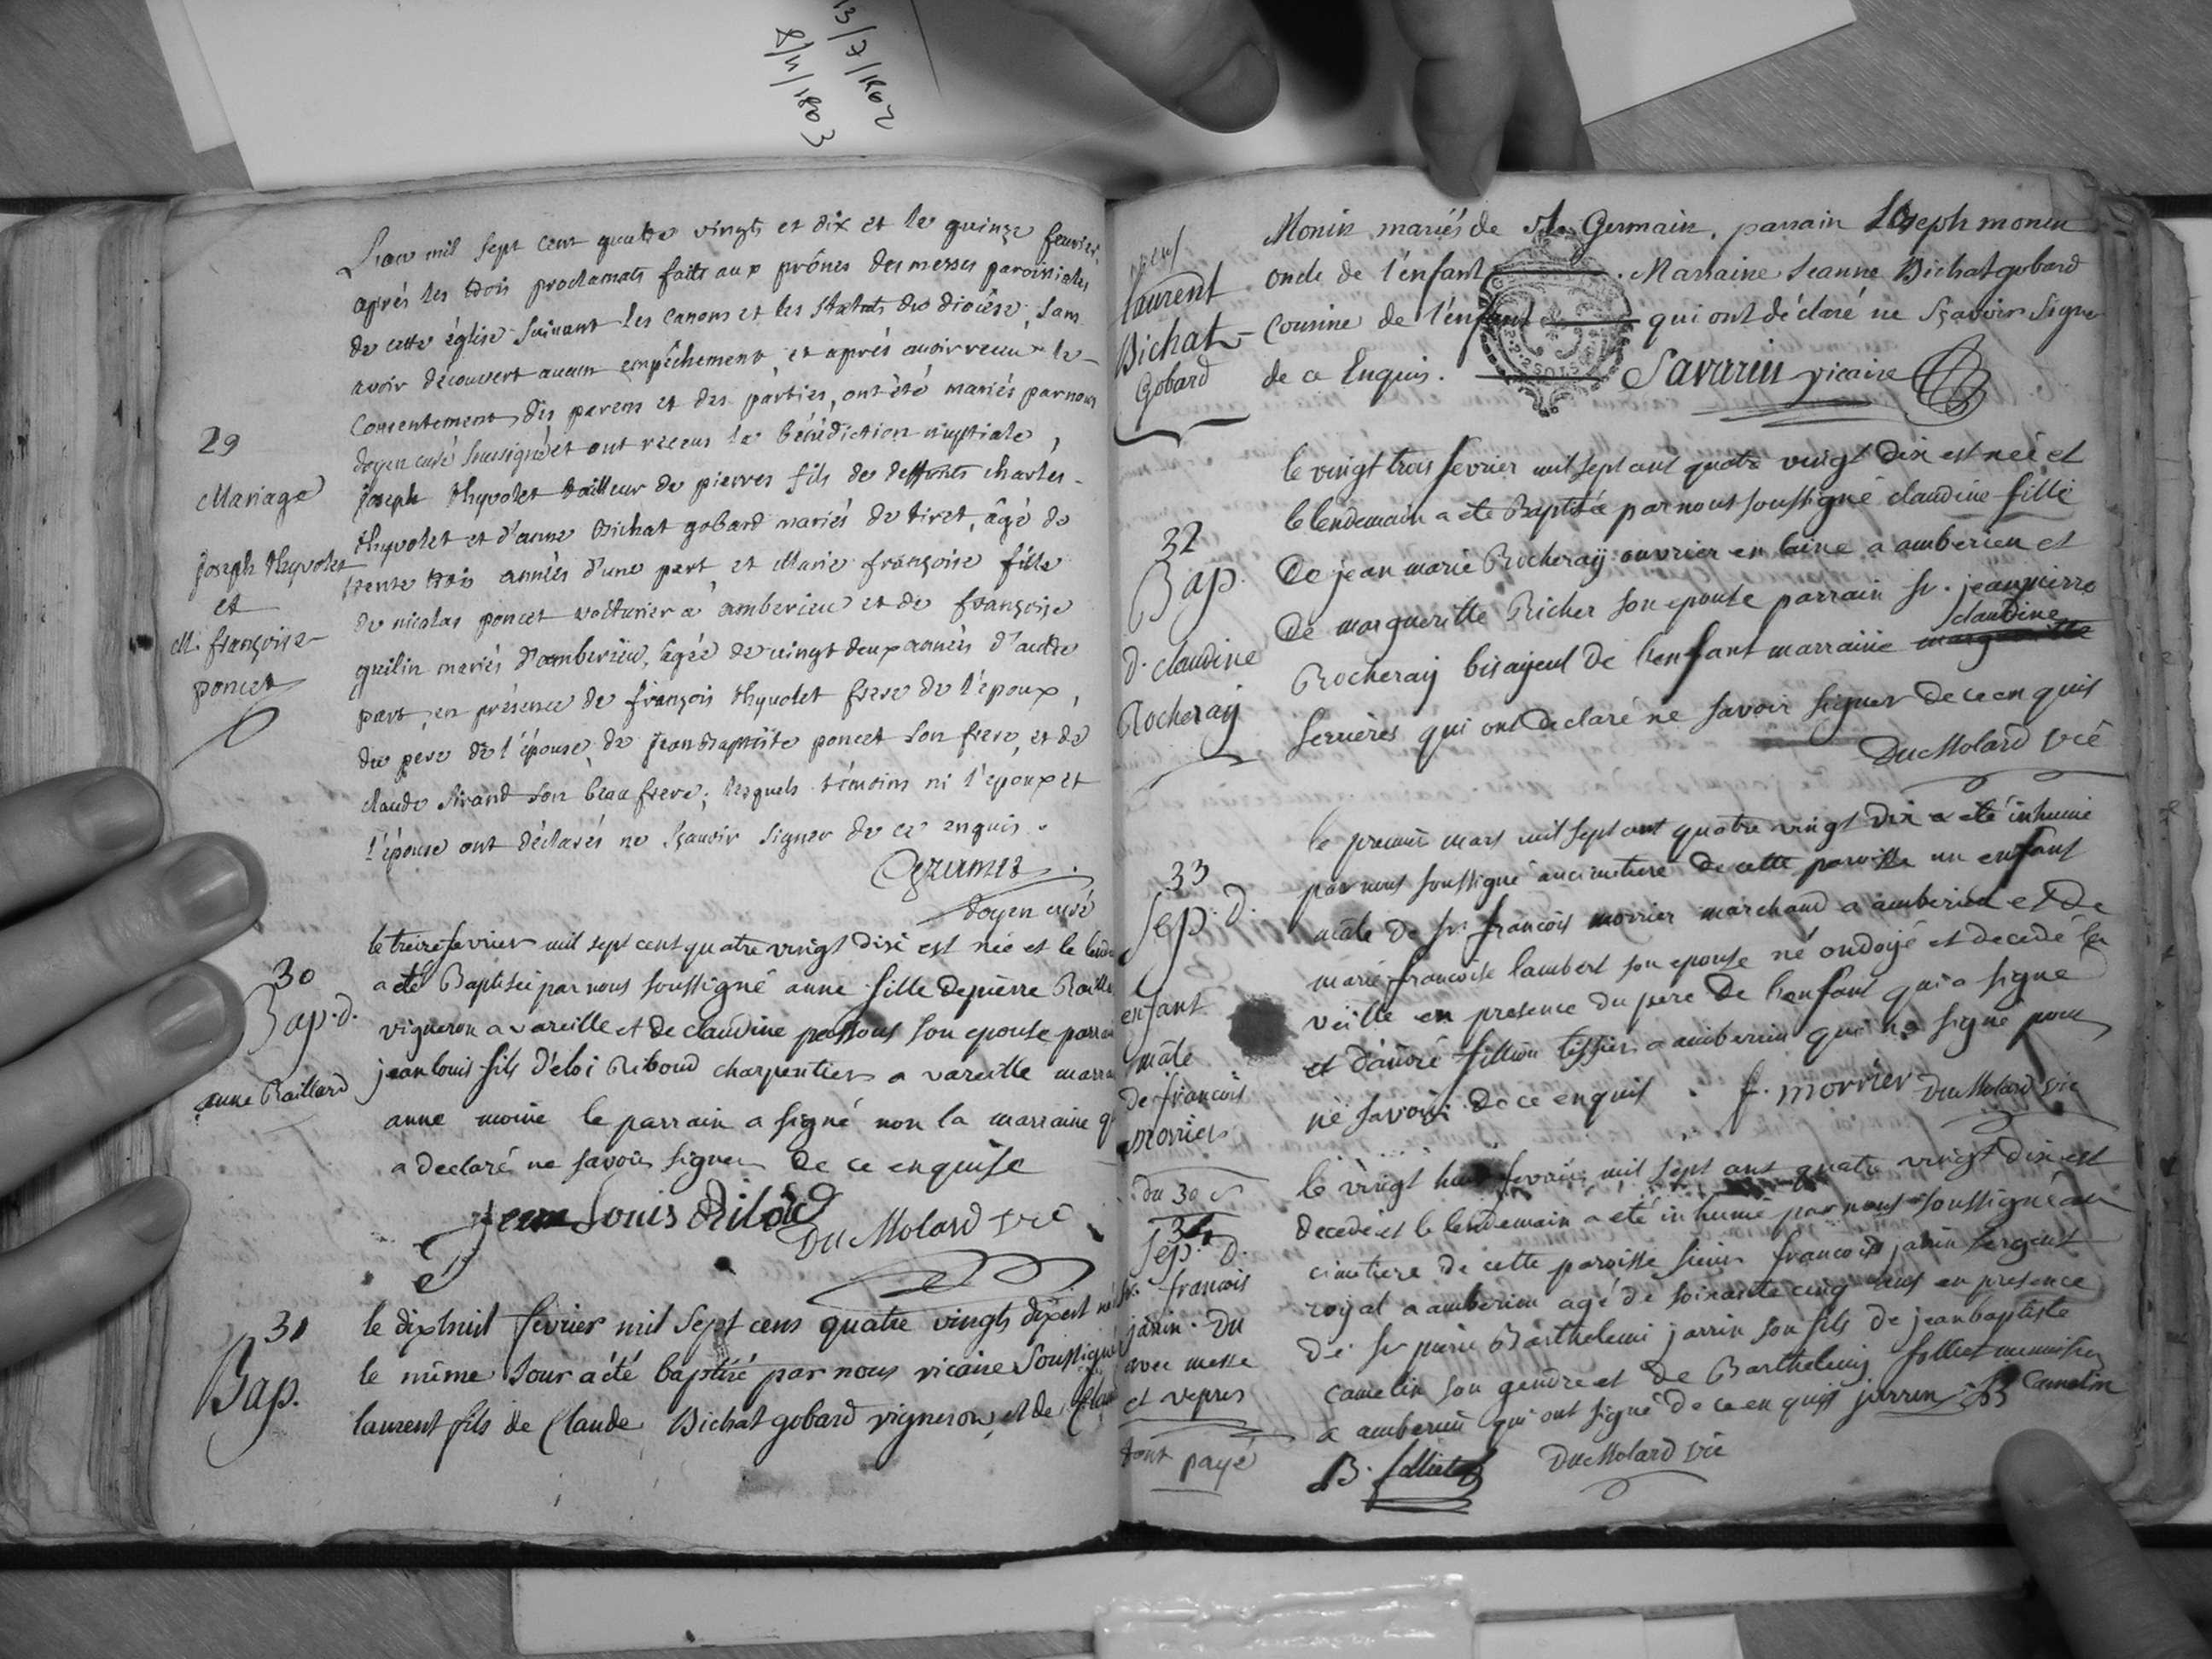 13/7/1802
8/4/1803
L'an mil sept cent quatre vingts et dix et le quinze fevrier,
aprés les trois proclamats faits aux prônes des messes paroissiales
de cette église suivant les canons et les statuts du diocèse, sans
avoir découvert aucun empêchement, et aprés avoir receu le
consentement des parens et des parties, ont été mariés par nous
doyen curé soussigné et ont receus la bénédiction nuptiale,
29
Mariage
Joseph thyvolet
et
M. françoise
poncet
joseph thyvolet tailleur de pierres fils de deffunts charles
thyvolet et d'anne Bichat gobard mariés de tiret, âgé de
trente trois années d'une part, et Marie françoise fille
de nicolas poncet voiturier a amberieu et de françoise
guilin mariés d'amberieu, agée de vingt deux années d'autre
part, en présence de françois thyvolet frere de l'époux,
du père de l'épouse, de Jean Baptiste poncet son frere, et de
claude Sirand son beau frere; lesquels témoins ni l'époux et
l'épouse ont déclarés ne sçavoir signer de ce enquis.
Grumet
doyen curé
30
Bap. d.
anne Raillard
le treize fevrier mil sept cent quatre vingt dix est née et le
a été Baptisée par nous soussigné anne fille de pierre
vigneron a vareille et de claudine son epouse
jean louis fils d'eloi Riboud charpentier a vareille
anne moine le parrain a signé non la marraine
a declaré ne savoir signer de ce enquise
Jean Louis Riboud
DuMolard vic
31
Bap.
le dixhuit fevrier mil sept cens quatre vingts dix est né
le même jour a été baptisé par nous vicaire soussigné
laurent fils de Claude Bichat gobard vigneron, et de
laurent
Bichat
Gobard
Monin mariés de St Germain, parrain Joseph monin
oncle de l'enfant. Marraine Jeanne Bichat gobard
cousine de l'enfant qui ont déclaré ne sçavoir signer
de ce Enquis. Savarin vicaire
32
Bap.
d. claudine
Rocheray
le vingt trois fevrier mil sept cent quatre vingt dix est née et
le lendemain a été Baptisée par nous soussigné claudine fille
de jean marie Rocheray ouvrier en laine a amberieu et
de margueritte Richer son epouse parrain sr. jean pierre
claudine
Rocheray bisayeul de l'enfant marraine margueritte
serrieres qui ont declaré ne savoir signer de ce enquis
DuMolard vic
33
Sep. d.
enfant
mâle
de francois
morrier
le premier mars mil sept cent quatre vingt dix a été inhumé
par nous soussigné au cimetiere de cette paroisse un enfant
mâle de sr. francois morrier marchand a amberieu et de
marie francoise lambert son epouse né ondoyé et decedé la
veille en presence du pere de l'enfant qui a signé
et d'andré fillion tissier a amberieu qui n'a signé pour
ne savoir de ce enquis. f. morrier DuMolard vic
du 30
34
Sep. d.
sr. francois
jarrin. Du
avec messe
et vepres
tout payé
le vingt huit fevrier mil sept cent quatre vingt dix est
decedé et le lendemain a été inhumé par nous soussigné au
cimetiere de cette paroisse sieur francois jarrin sergent
royal a amberieu agé de soixante cinq ans en presence
de sr pierre Barthelemi jarrin son fils de jean baptiste
camelin son gendre et de Barthelemy folliet menuisier
a amberieu qui ont signé de ce enquis jarrin JB Camelin
B. folliet DuMolard vic